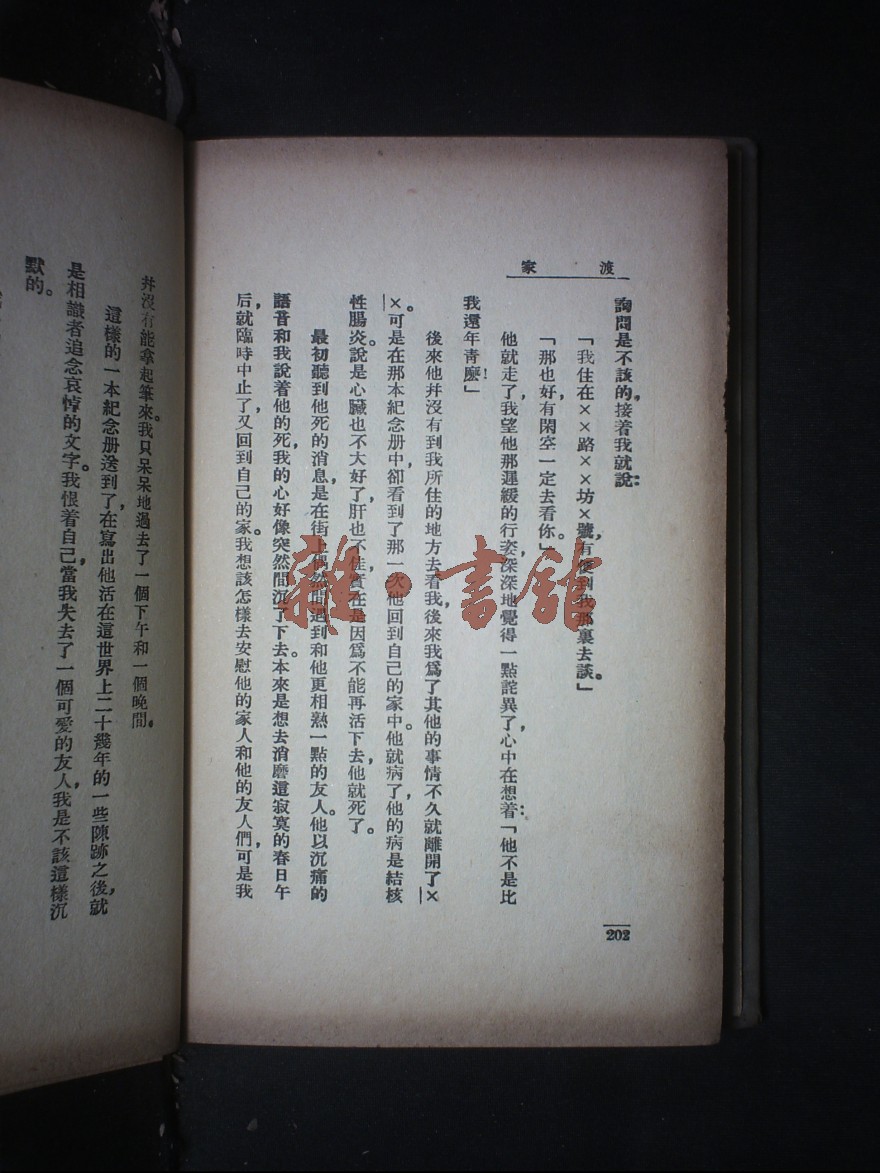 渡家
詢問是不該的，接着我就說：
「我住在××路××坊×號，有便到我那裏去談。」
「那也好，有閑空一定去看你。」
他就走了，我望他那遲緩的行姿，深深地覺得一點詫異了，心中在想着：「他不是比
我還年青麽！」
後來他幷沒有到我所住的地方去看我，後來我爲了其他的事情不久就離開了×
×。可是在那本紀念册中，卻看到了那一次他回到自己的家中。他就病了，他的病是結核
性腸炎。說是心臟也不大好了，肝也不佳，實在是因爲不能再活下去，他就死了。
最初聽到他死的消息，是在街上偶然間遇到和他更相熟一點的友人。他以沉痛的
語音和我說着他的死，我的心好像突然間沉了下去。本來是想去消磨這寂寞的春日午
后，就臨時中止了，又回到自己的家。我想該怎樣去安慰他的家人和他的友人們，可是我
202
幷沒有能拿起筆來。我只呆呆地過去了一個下午和一個晚間。
這樣的一本紀念册送到了，在寫出他活在這世界上二十幾年的一些陳跡之後，就
是相識者追念哀悼的文字。我恨着自己，當我失去了一個可愛的友人，我是不該這樣沉
默的。
雜·書館